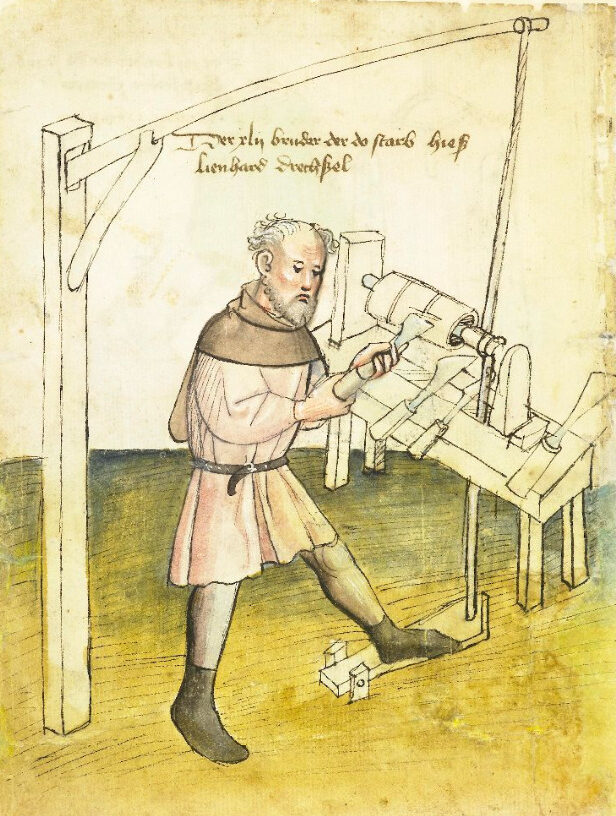 Der xlij bruder der do starb hieß
Lienhard drechßel